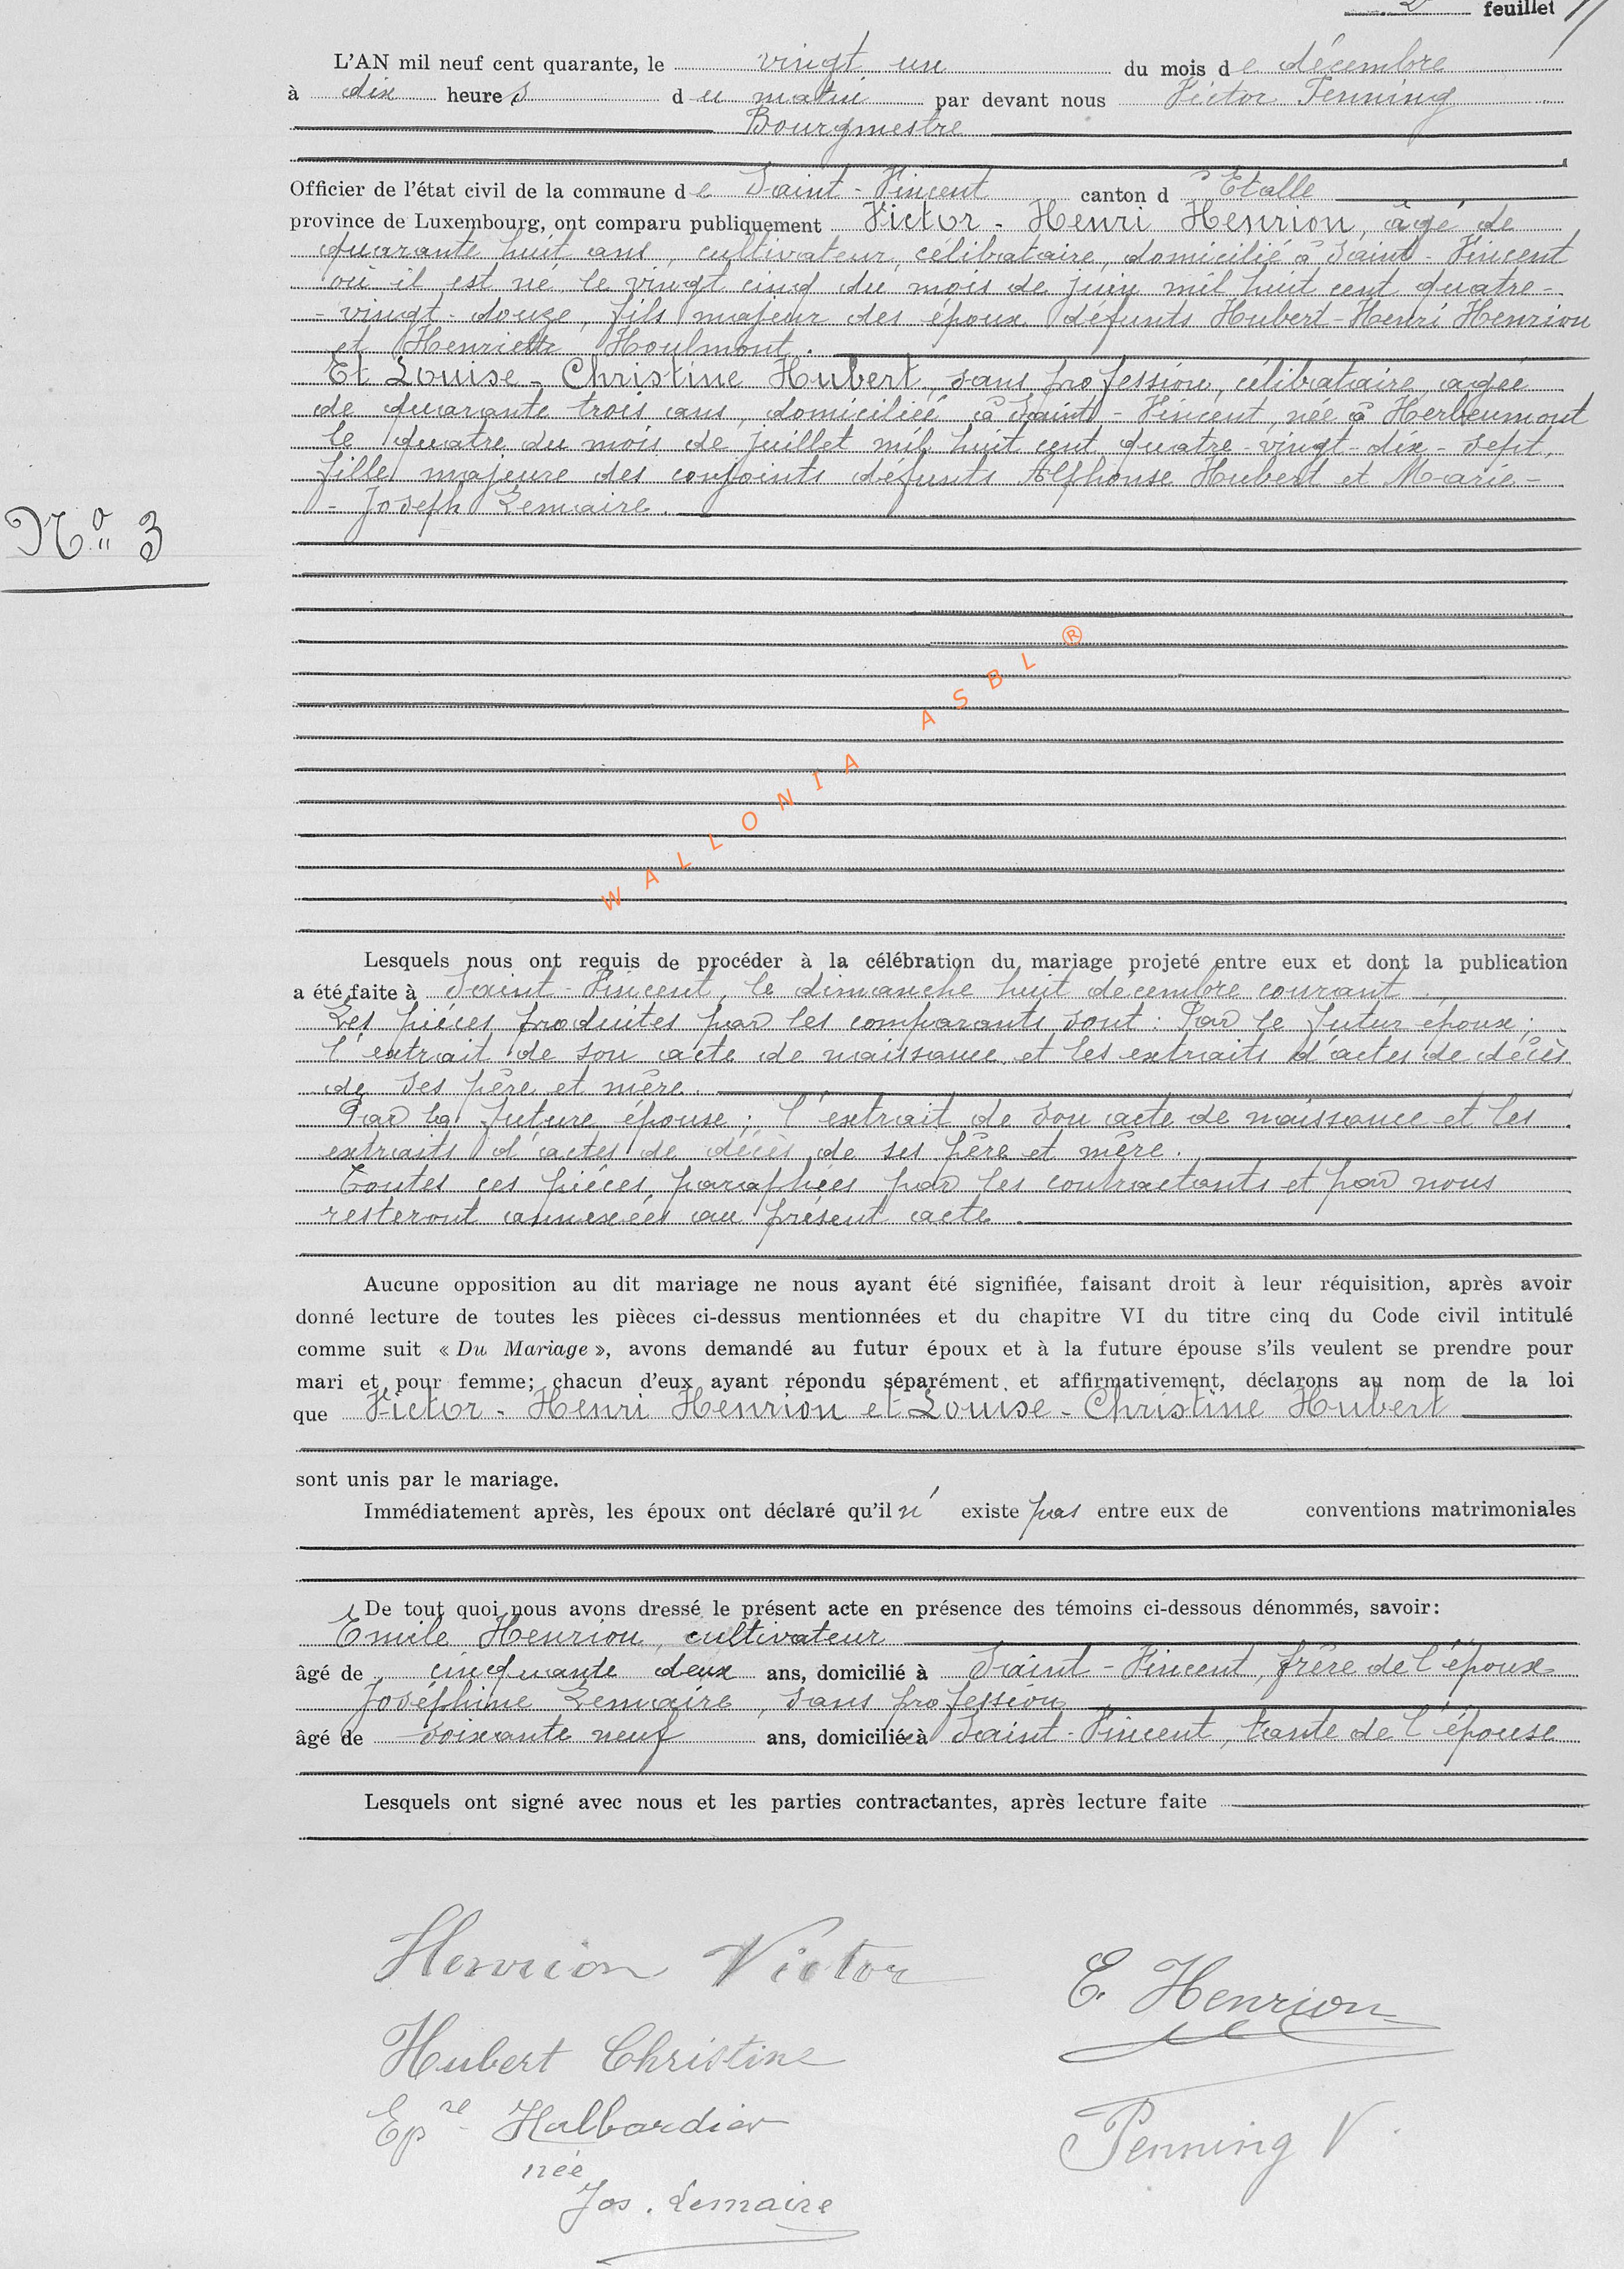 2e feuillet
L'AN mil neuf cent quarante, le vingt un du mois de décembre
à dix heures du matin par devant nous Victor Penning
Bourgmestre
Officier de l'état civil de la commune de Saint-Vincent canton d'Etalle
province de Luxembourg, ont comparu publiquement Victor-Henri Henrion, âgé de
quarante huit ans, cultivateur, célibataire, domicilié à Saint-Vincent
où il est né le vingt cinq du mois de juin mil huit cent quatre-
-vingt-douze, fils majeur des époux défunts Hubert-Henri Henrion
et Henriette Houlmont.
Et Louise-Christine Hubert, sans profession, célibataire, agée
de quarante trois ans, domiciliée à Saint-Vincent, née à Herbeumont
le quatre du mois de juillet mil huit cent quatre-vingt-dix-sept,
fille majeure des conjoints défunts Alphonse Hubert et Marie-
-Joseph Lemaire.
No 3
WALLONIA ASBL ®
Lesquels nous ont requis de procéder à la célébration du mariage projeté entre eux et dont la publication
a été faite à Saint-Vincent, le dimanche huit décembre courant
Les pièces produites par les comparants sont: Par le futur époux;
l'extrait de son acte de naissance et les extraits d'actes de décès
de ses père et mère.
Par la future épouse; l'extrait de son acte de naissance et les
extraits d'actes de décès de ses père et mère.
Toutes ces pièces paraphées par les contractants et par nous
resteront annexées au présent acte.
Aucune opposition au dit mariage ne nous ayant été signifiée, faisant droit à leur réquisition, après avoir
donné lecture de toutes les pièces ci-dessus mentionnées et du chapitre VI du titre cinq du Code civil intitulé
comme suit « Du Mariage », avons demandé au futur époux et à la future épouse s'ils veulent se prendre pour
mari et pour femme; chacun d'eux ayant répondu séparément et affirmativement, déclarons au nom de la loi
que Victor-Henri Henrion et Louise-Christine Hubert
sont unis par le mariage.
Immédiatement après, les époux ont déclaré qu'il n'existe pas entre eux de conventions matrimoniales
De tout quoi nous avons dressé le présent acte en présence des témoins ci-dessous dénommés, savoir:
Emile Henrion, cultivateur
âgé de cinquante deux ans, domicilié à Saint-Vincent, frère de l'époux
Joséphine Lemaire, sans profession
âgé de soixante neuf ans, domiciliée à Saint-Vincent, tante de l'épouse
Lesquels ont signé avec nous et les parties contractantes, après lecture faite
Henrion Victor
E. Henrion
Hubert Christine
Epse Halbardier
née
Jos. Lemaire
Penning V.